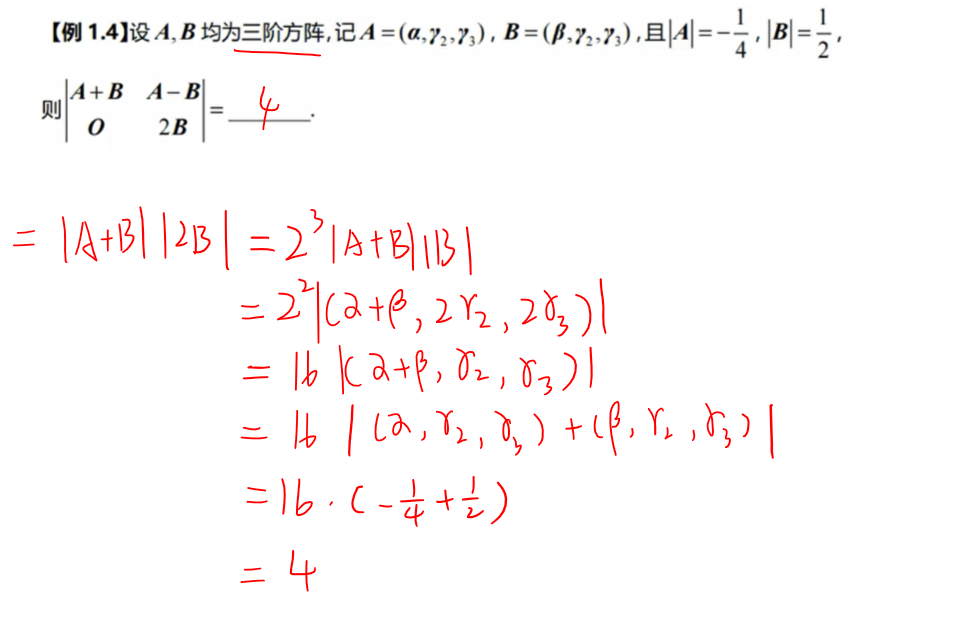 【例 1.4】设 A, B 均为三阶方阵,记 A=(α,γ₂,γ₃), B=(β,γ₂,γ₃),且|A|=-1/4, |B|=1/2,
则|A+B A-B; O 2B|= 4 .
= |A+B| |2B| = 2³|A+B||B|
= 2²|(α+β, 2γ₂, 2γ₃)|
= 16 |(α+β, γ₂, γ₃)|
= 16 |(α, γ₂, γ₃)+(β, γ₂, γ₃)|
= 16·(-1/4+1/2)
= 4